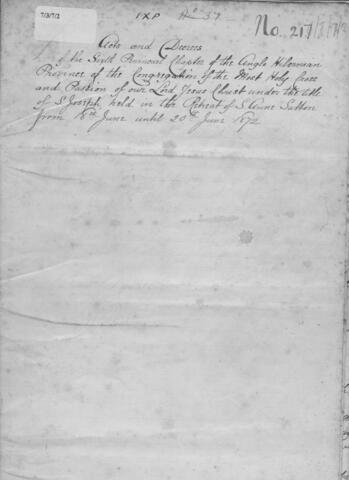 JXP No 37.
No. 217
Acts and Decrees
of the Sixth Provincial Chapter of the Anglo Hibernian
Province of the Congregation of the Most Holy Cross
and Passion of our Lord Jesus Christ under the title
of St Joseph, held in the Retreat of S. Anne Sutton
from 18th June until 20th June 1872